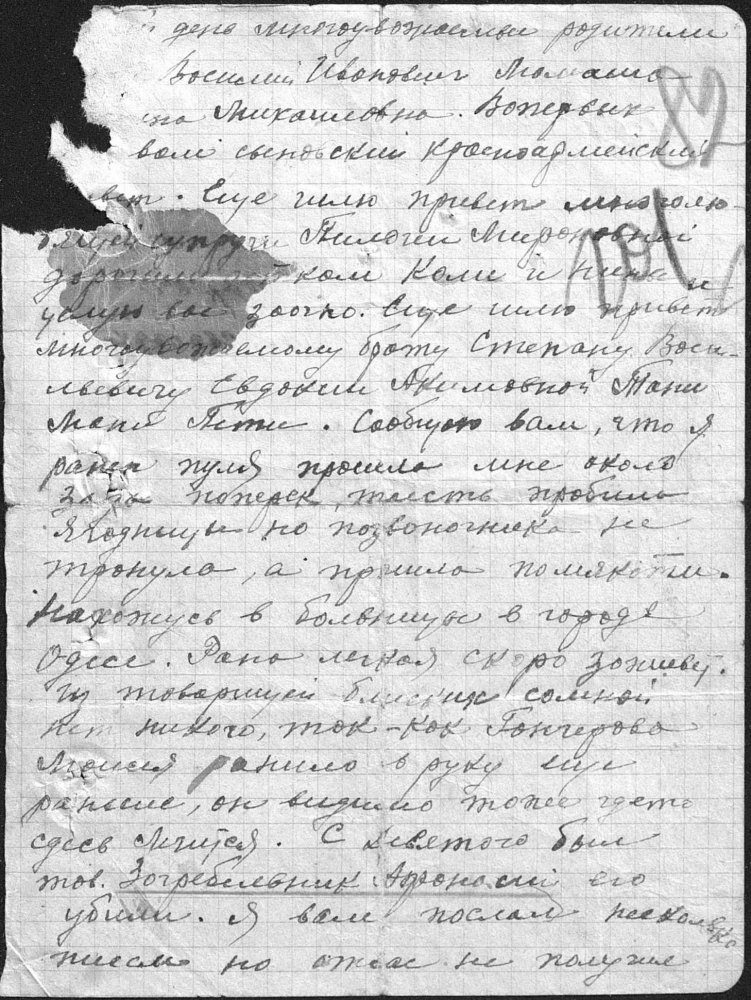 день многоуважаемыи родители
Василий Иванович Мамаша
на Михаиловна. Вопервых
вам сыновский красноармейский
вет. Еще шлю привет многолю-
бящей супруги Пилогии Мироновной
дорогим деткам Коли и Нины и
целую вас заочно. Еще шлю привет
многоуважаемому брату Степану Васи-
льевичу Евдокии Акимовной Тани
Мани Пети. Сообщаю вам, что я
ранен пуля прошла мне около
зада поперек, тоесть пробила
ягодицы но позвоночника не
тронула, а прошла помякоти.
Нахожусь в больницы в городе
Одесе. Рана легкая скоро заживет.
Из товарищей близких сомной
нет никого, так-как Гончерова
Моисея ранило в руку еще
раньше, он видимо тоже гдето
сдесь личится. С девятого был
тов. Загребельник Афонасий его
убили. Я вам послал несколько
писем но от вас не получил
82
101